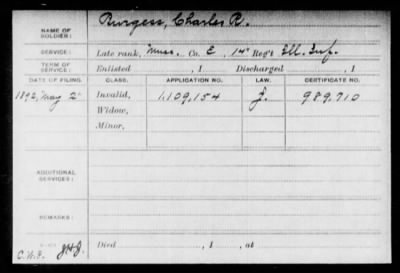 NAME OF SOLDIER: Burgess, Charles R.
SERVICE: Late rank, Mus., Co. E, 14" Reg't Ill. Inf.
TERM OF SERVICE: Enlisted , 1 Discharged , 1
DATE OF FILING. CLASS. APPLICATION NO. LAW. CERTIFICATE NO.
1892, May 2" Invalid, 1,109,154 J. 989,710
Widow,
Minor,
ADDITIONAL SERVICES:
REMARKS:
Died , 1 , at